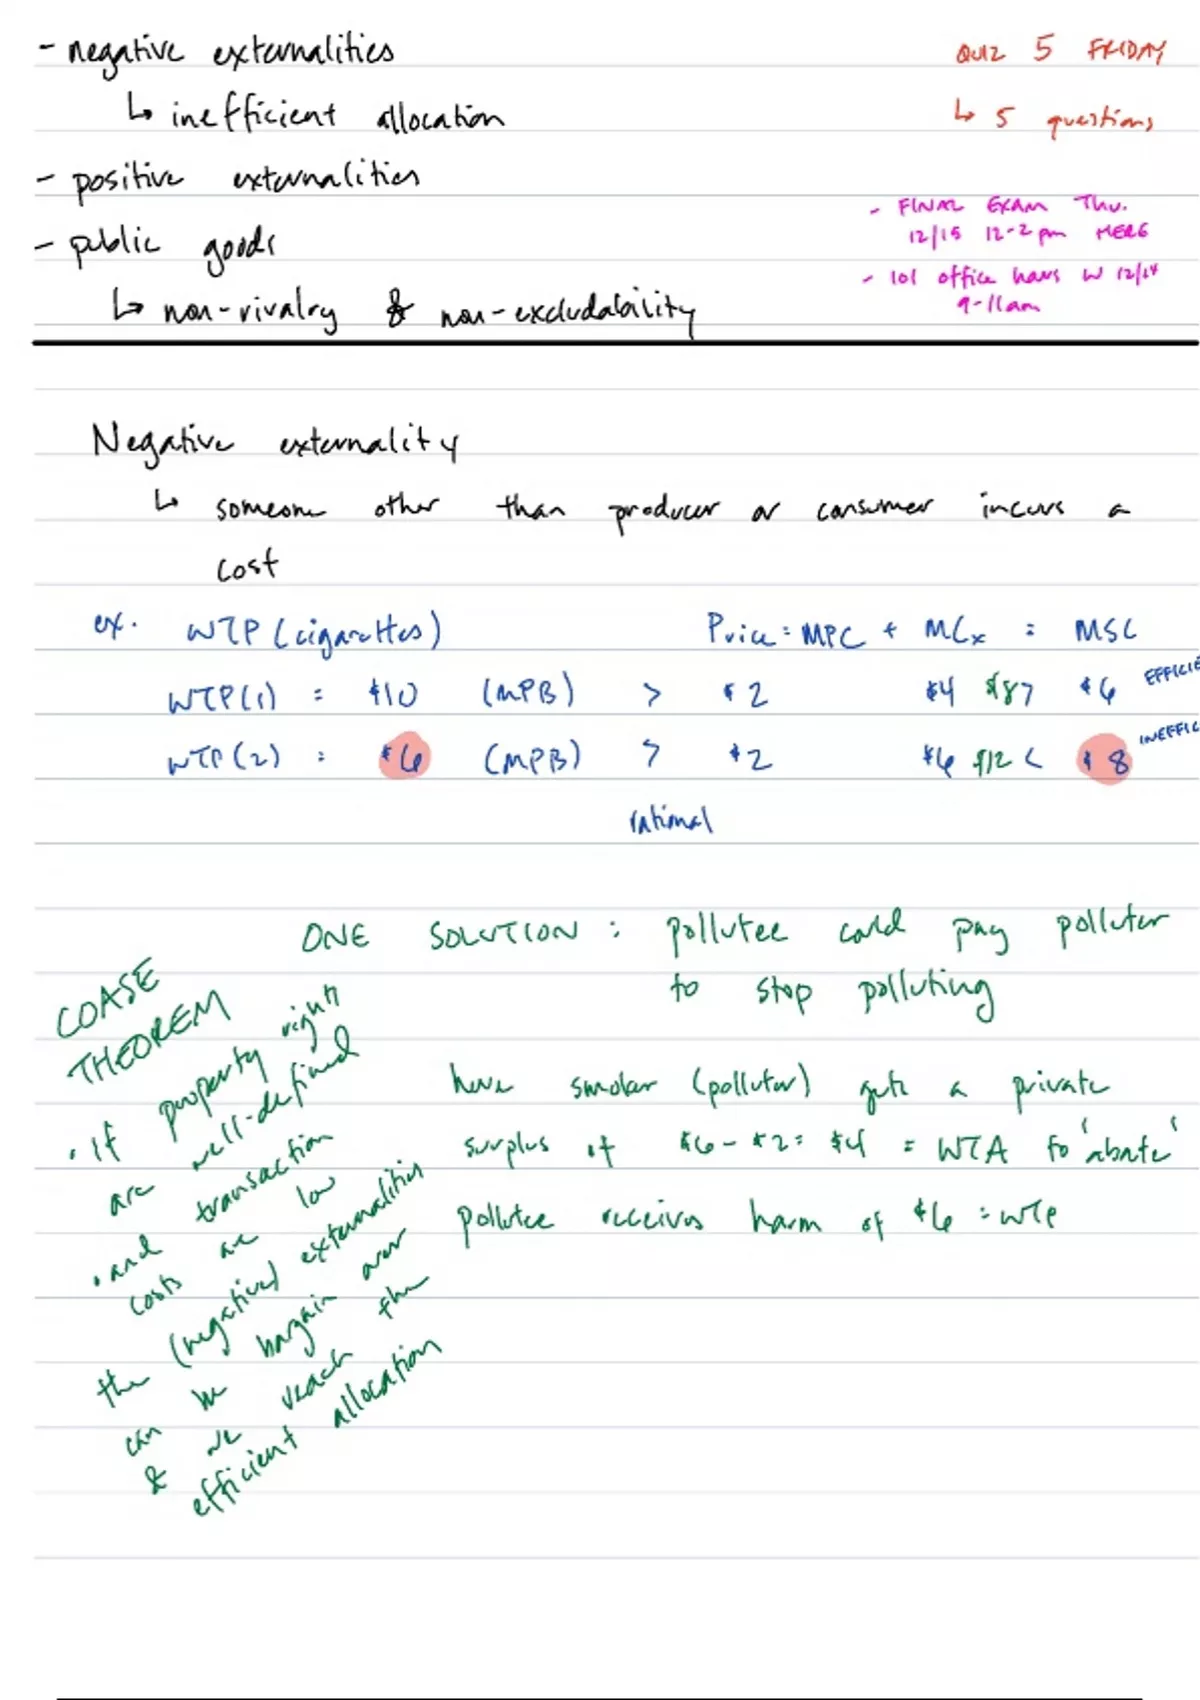 - negative externalities
↳ inefficient allocation
- positive externalities
- public goods
↳ non-rivalry & non-excludability
QUIZ 5 FRIDAY
↳ 5 questions
- FINAL EXAM Thu.
12/15 12-2pm HERE
- 101 office hours W 12/14
9-11am
Negative externality
↳ someone other than producer or consumer incurs a
cost
ex. WTP (cigarettes) Price = MPC + MCx = MSC
WTP(1) = $10 (MPB) > $2 $4 $8 > $6 EFFICIE
WTP(2) = $6 (MPB) > $2 $6 $12 < $8 INEFFIC
rational
ONE SOLUTION: pollutee could pay polluter
to stop polluting
COASE
THEOREM
• If property rights
are well-defined
• and transaction
costs are low
the (negative) externalities
can be bargain over
& we reach the
efficient allocation
here smoker (polluter) gets a private
surplus of $6 - $2 = $4 = WTA to 'abate'
pollutee receives harm of $6 = WTP